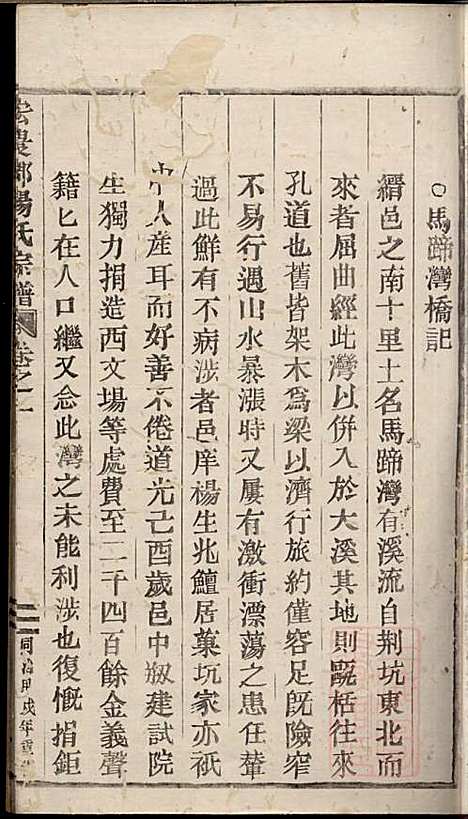 ○馬蹄灣橋記
縉邑之南十里土名馬蹄灣有溪流自荆坑東北而
來者屈曲經此灣以併入於大溪其地則甌栝往來
孔道也舊皆架木爲梁以濟行旅約僅容足旣險窄
不易行遇山水暴漲時又屢有激衝漂蕩之患任輦
過此鮮有不病涉者邑庠楊生兆鱣居菓坑家亦祇
中人產耳而好善不倦道光己酉歲邑中剏建試院
生獨力捐造西文場等處費至二千四百餘金義聲
籍匕在人口繼又念此灣之未能利涉也復慨捐鉅
宏農郡楊氏宗譜 卷之一
同治甲戌年重